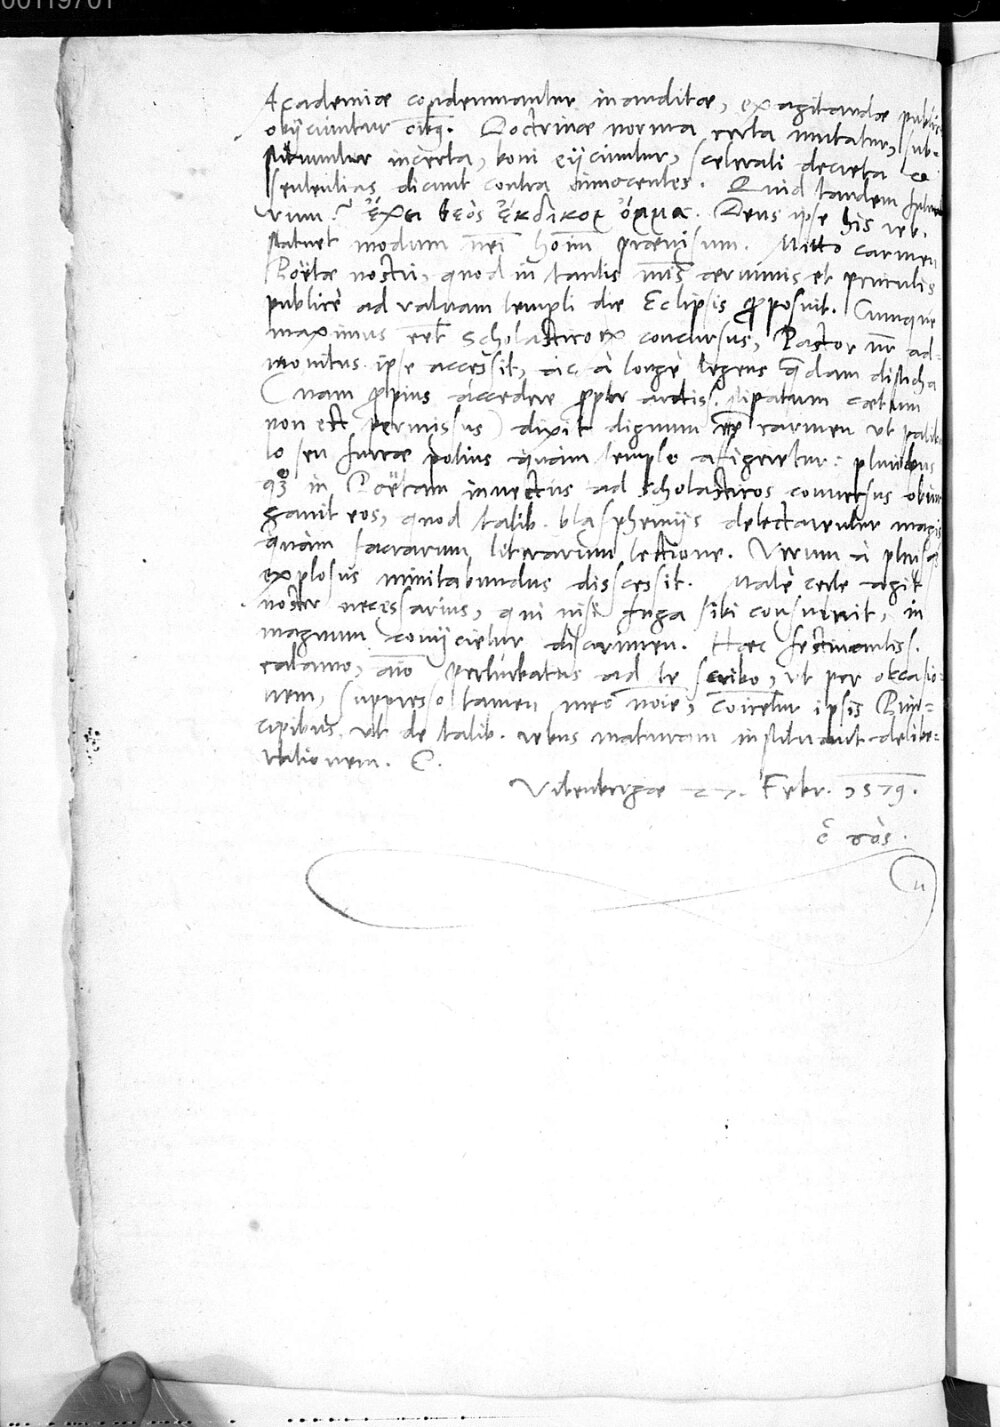 00119701
Academiæ condemnantur inauditæ, exagitandæ publicè
obijciuntur cibq. Doctrinæ norma certa mutatur, sub-
stituuntur incerta, boni eijciuntur, scelerati decreta et
sententias dicunt contra innocentes. Quid tandem futu
rum? ἔχει θεὸς ἔκδικον ὄμμα. Deus ipse his reb.
statuet modum nēi hoīm prævisum. Mitto carmen
Poëtæ nostri, quod in tantis nr̄is ærumnis et periculis
publicè ad valvam templi die Eclipsis proposuit. Cumque
maximus eēt scholasticorum concursus, Pastor nr̄ ad-
monitus ipse accessit, ac à longè legens quædam disticha
(nam propius accedere propter ardtiss. stipatum cætum
non est permissus) dixit dignum eē carmen ut patibu
lo seu furcæ potius quàm templo afigeretur: pluribus
q₃ in Poëtam invectus ad scholasticos conversus obiur
gavit eos, quod talib. blasphemijs delectarentur magis
quàm sacrarum literarum lectione. Verum à plerisq
explosus minitabundus discessit. Malè certe agit
noster necessarius, qui nisi fuga sibi consulerit, in
magnum conijcietur discrimen. Hæc festinantiss.
calamo, aīo perturbatus ad te scribo, ut per occasio-
nem, suppresso tamen meo noīe, coīcetur ipsis Prin-
cipibus, ut de talib. rebus maturam instituant delibe-
rationem. C.
Vitenbergæ 27. Febr. 1579.
ὁ σὸς.